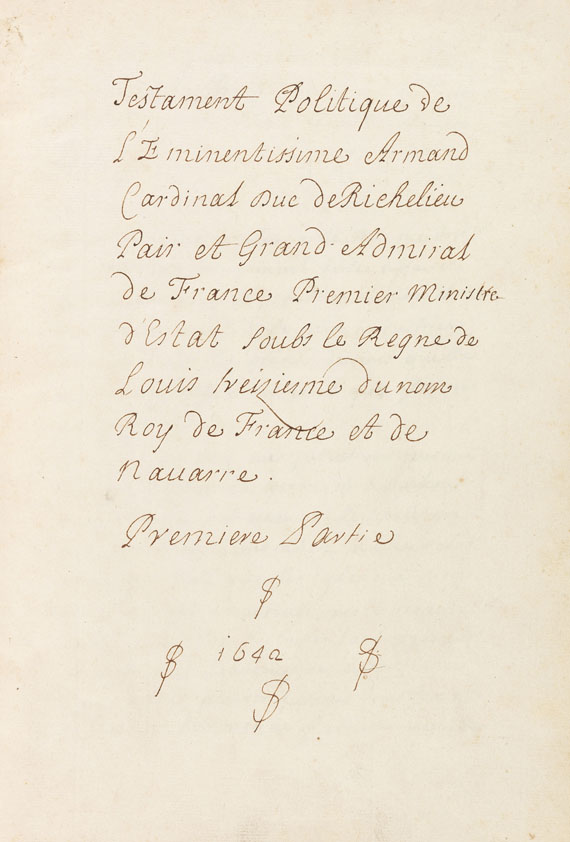 Testament Politique de
l'Eminentissime Armand
Cardinal Duc de Richelieu
Pair et Grand Admiral
de France Premier Ministre
d'Estat soubs le Regne de
Louis treiziesme du nom
Roy de France et de
Nauarre.
Premiere Partie
1642